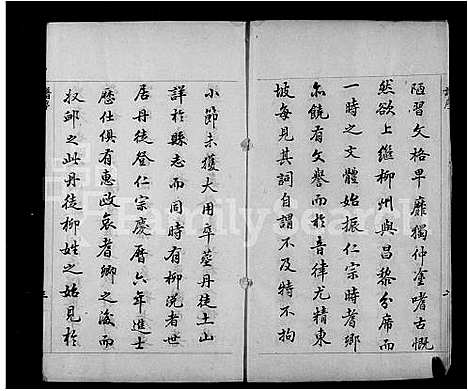 陋習文格卑靡獨仲塗嗜古慨
然欲上繼柳州與昌黎分席而
一時之文體始振仁宗時耆卿
亦饒有文譽而於音律尤精東
坡每見其詞自謂不及特不拘
小節未獲大用卒葬丹徒土山
詳於縣志而同時有柳況者世
居丹徒登仁宗慶曆六年進士
歷仕俱有惠政哀耆卿之淪而
收邱之此丹徒柳姓之始見於
FamilySearch